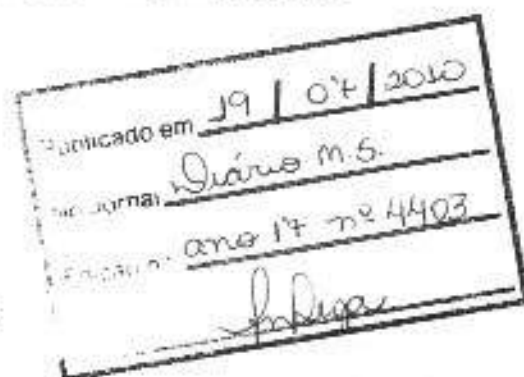 Publicado em 19 / 07 / 2010
Jornal Diário M.S.
ano 17 nº 4403